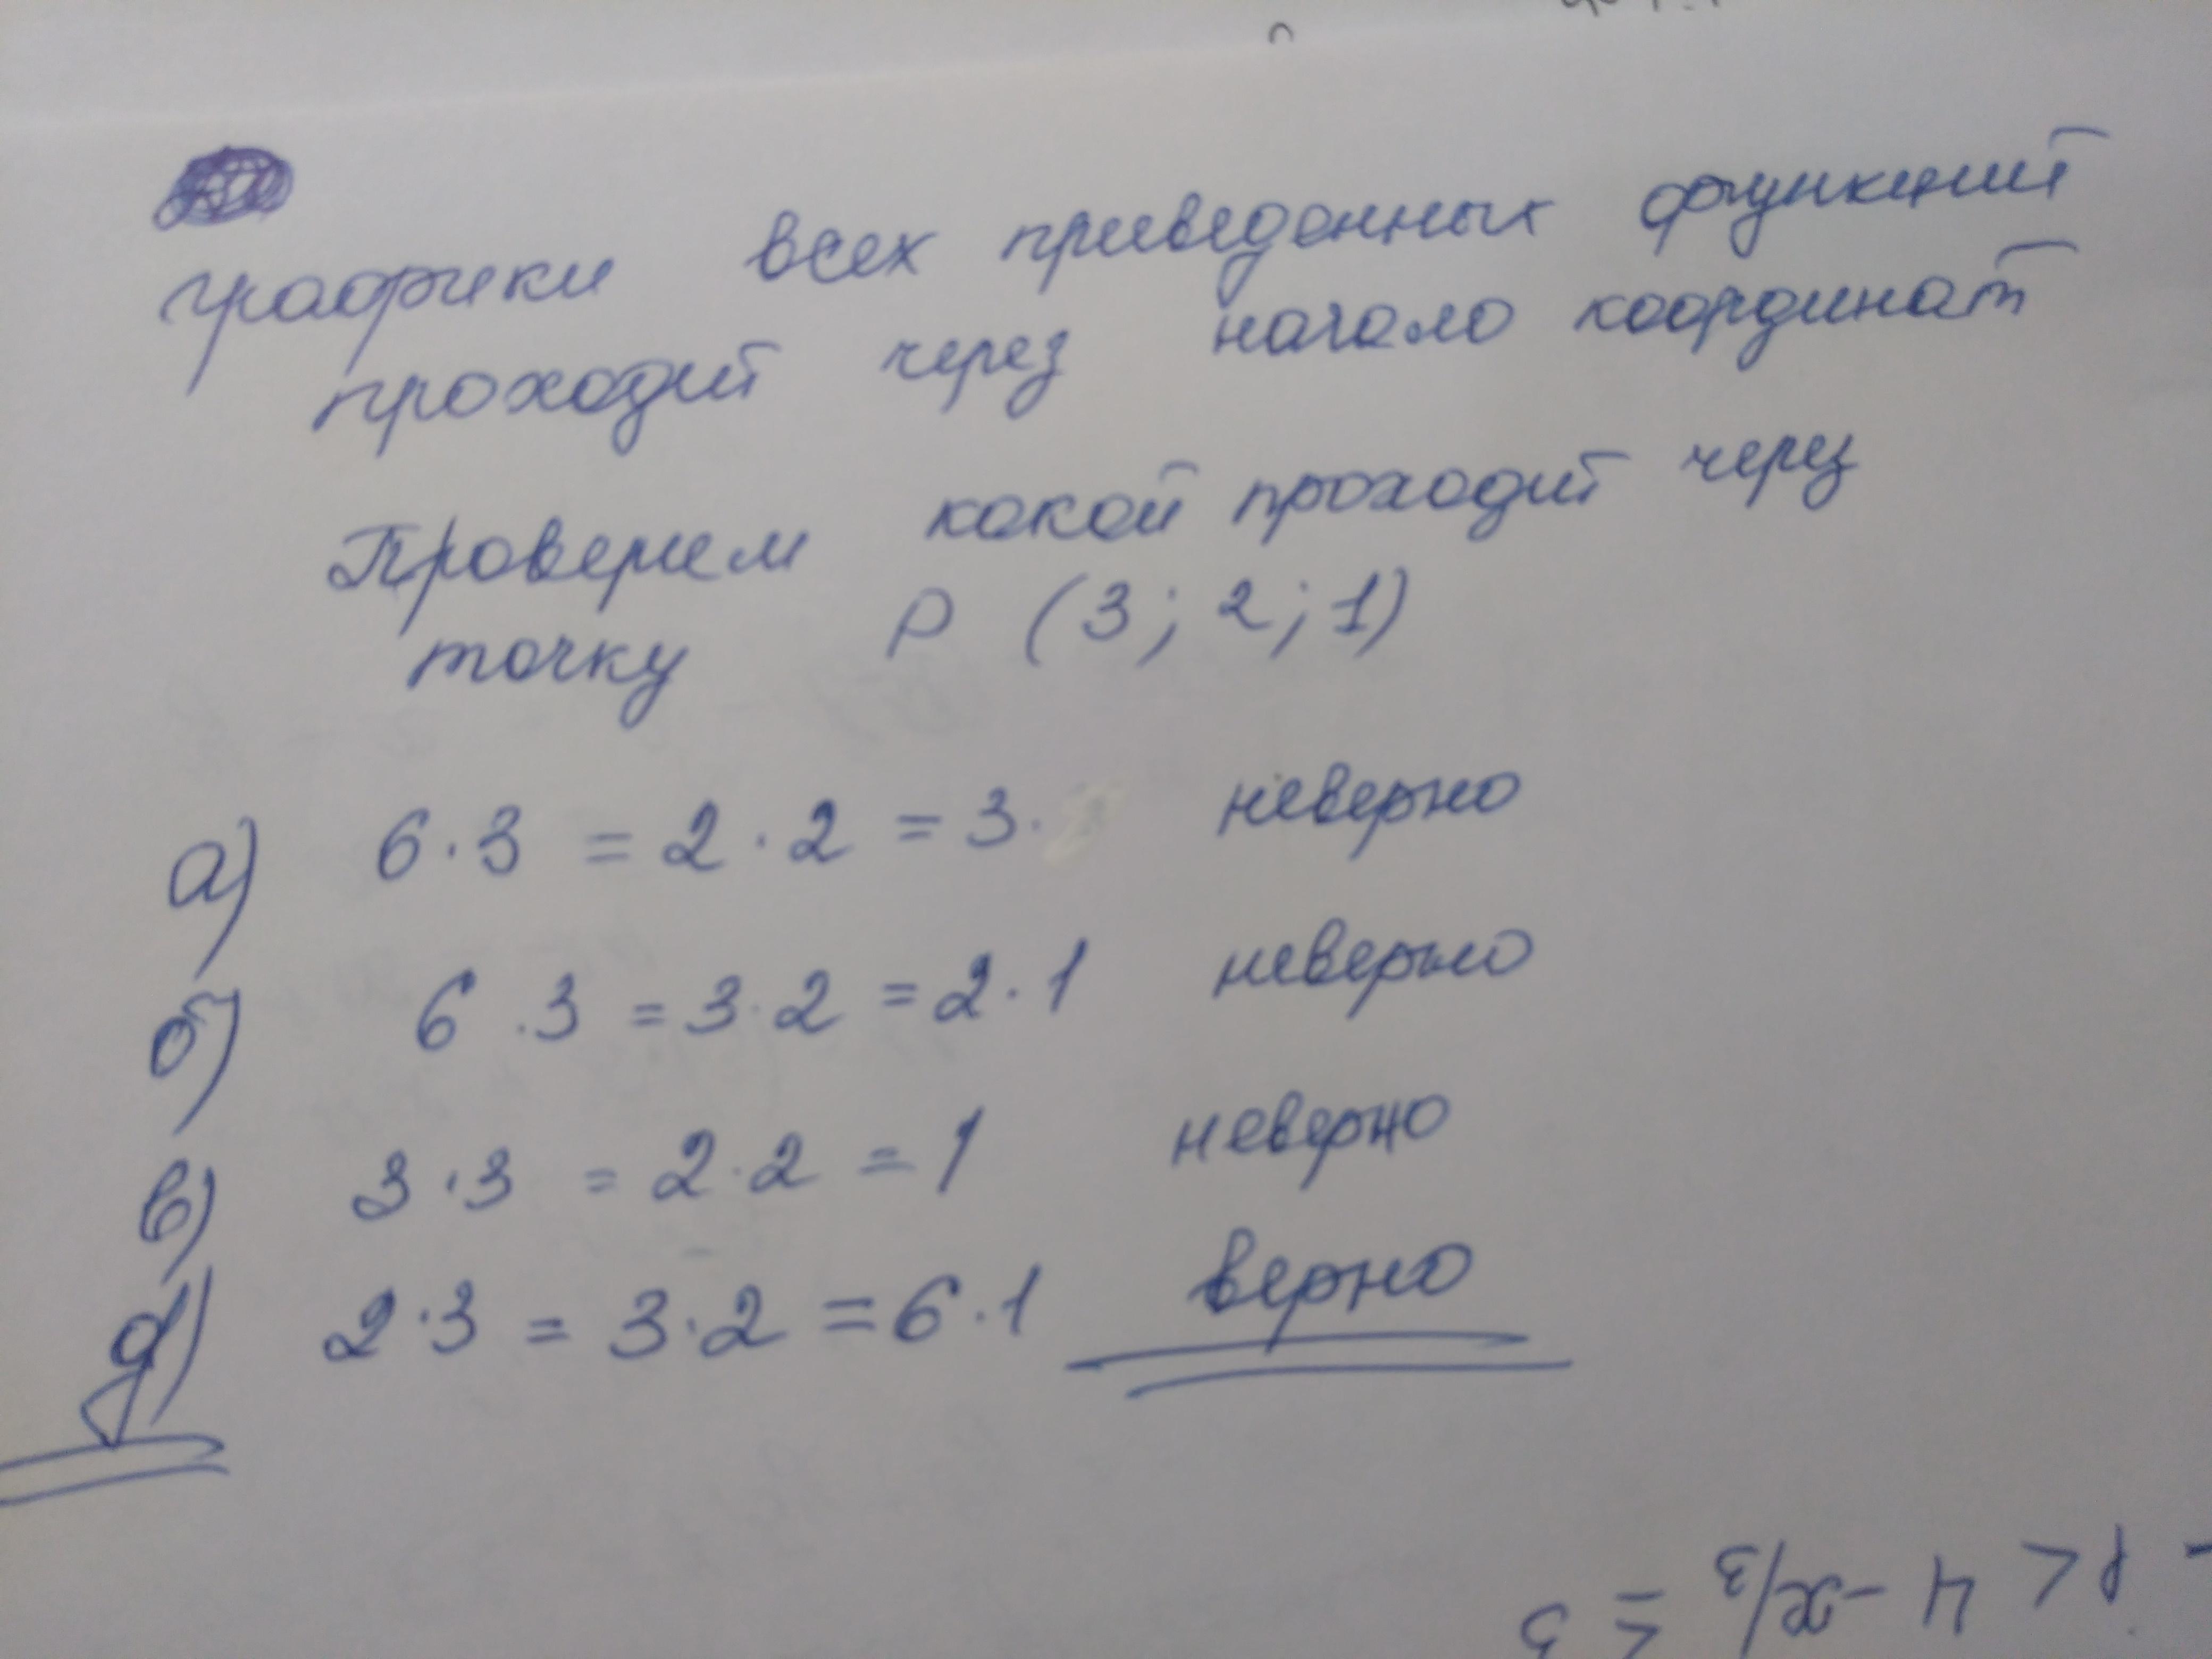 графики всех приведенных функций
проходит через начало координат
Проверим какой проходит через
точку P (3; 2; 1)
а) 6·3 = 2·2 = 3· неверно
б) 6·3 = 3·2 = 2·1 неверно
в) 3·3 = 2·2 = 1 неверно
д) 2·3 = 3·2 = 6·1 верно
1 < 4 - x/3 ≤